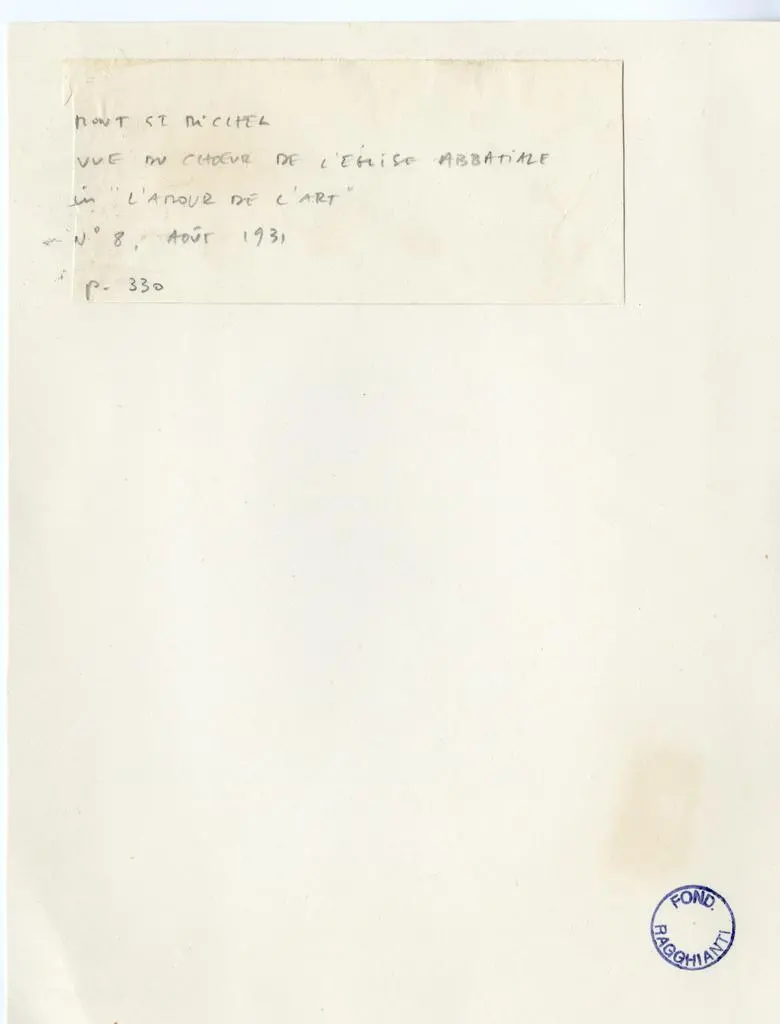 MONT ST MICHEL
VUE DU CHOEUR DE L'EGLISE ABBATIALE
in "L'AMOUR DE L'ART"
N° 8, AOÛT 1931
p. 330
FOND.
RAGGHIANTI